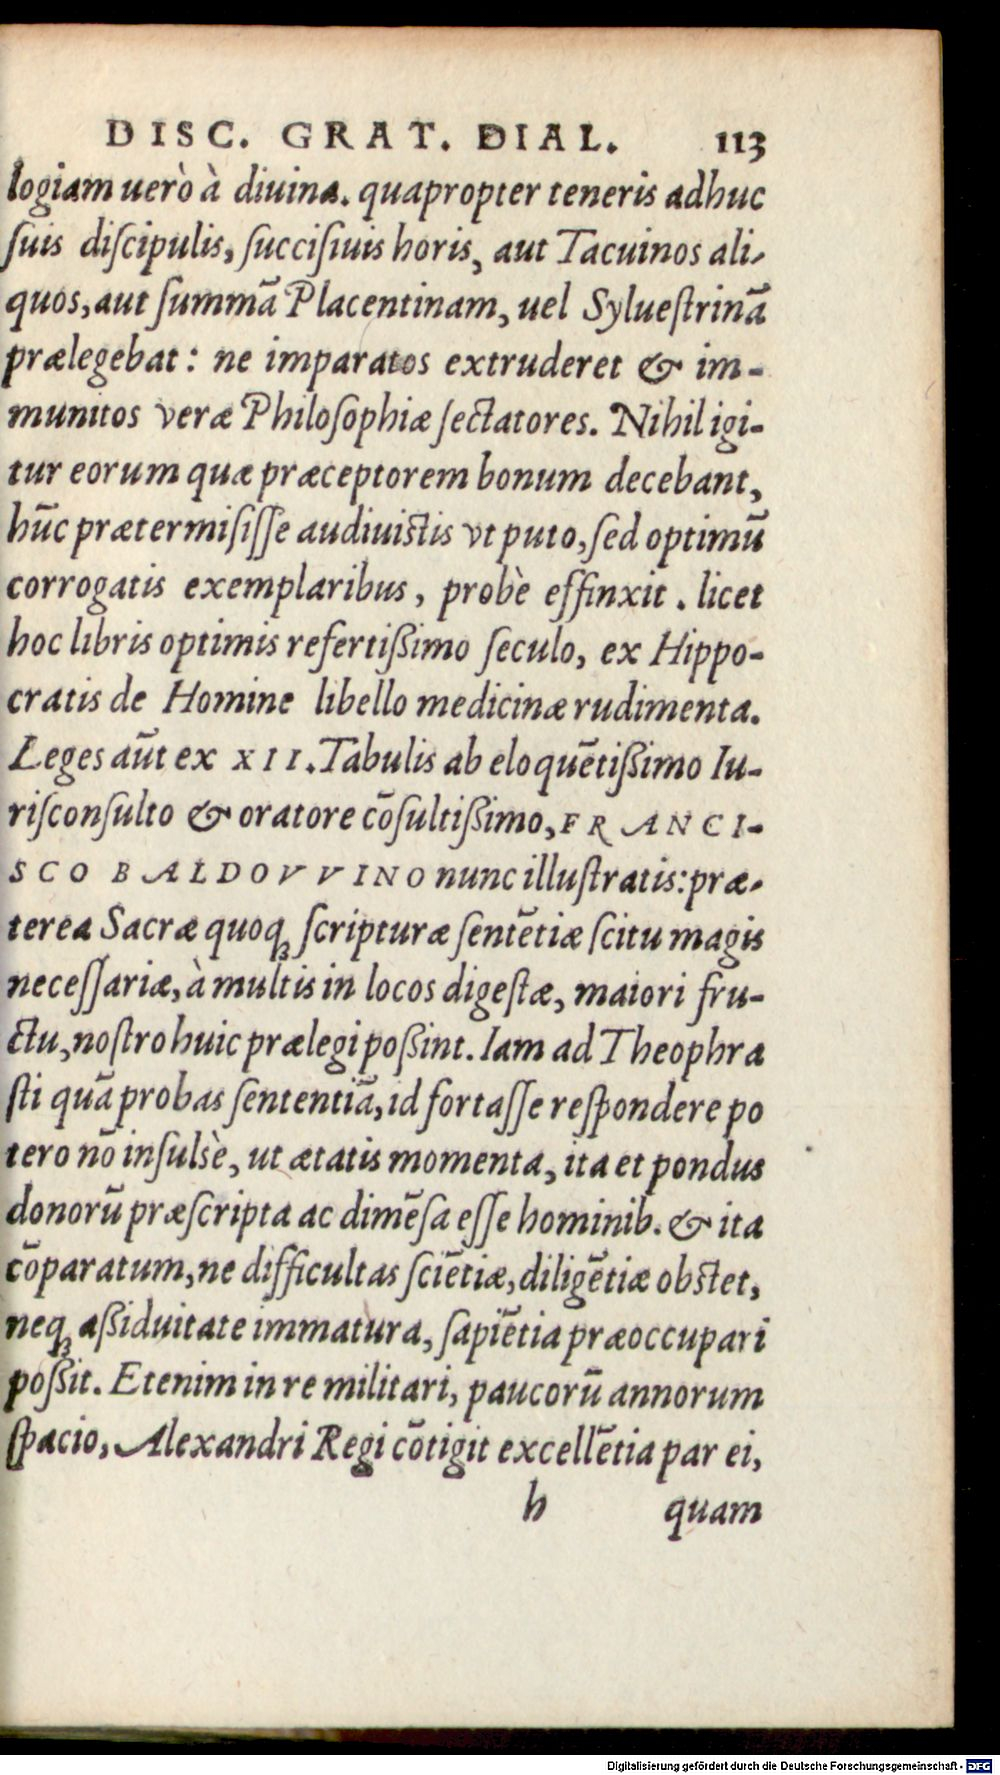 DISC. GRAT. DIAL. 113
logiam uerò à diuina. quapropter teneris adhuc
ſuis diſcipulis, ſucciſiuis horis, aut Tacuinos ali-
quos, aut ſummā Placentinam, uel Sylueſtrinā
prælegebat: ne imparatos extruderet & im-
munitos veræ Philoſophiæ ſectatores. Nihil igi-
tur eorum quæ præceptorem bonum decebant,
hūc prætermiſiſſe audiuiſtis vt puto, ſed optimū
corrogatis exemplaribus, probè effinxit. licet
hoc libris optimis refertißimo ſeculo, ex Hippo-
cratis de Homine libello medicinæ rudimenta.
Leges aūt ex XII. Tabulis ab eloquētißimo Iu-
riſconſulto & oratore cōſultißimo, FRANCI-
SCO BALDOVVINO nunc illuſtratis: præ-
terea Sacræ quoqꝫ ſcripturæ ſentētiæ ſcitu magis
neceſſariæ, à multis in locos digeſtæ, maiori fru-
ctu, noſtro huic prælegi poßint. Iam ad Theophra
ſti quā probas ſententiā, id fortaſſe reſpondere po
tero nō inſulsè, ut ætatis momenta, ita et pondus
donorū præſcripta ac dimēſa eſſe hominib. & ita
cōparatum, ne difficultas ſciētiæ, diligētiæ obſtet,
neqꝫ aßiduitate immatura, ſapiētia præoccupari
poßit. Etenim in re militari, paucorū annorum
ſpacio, Alexandri Regi cōtigit excellētia par ei,
h quam
Digitalisierung gefördert durch die Deutsche Forschungsgemeinschaft - DFG